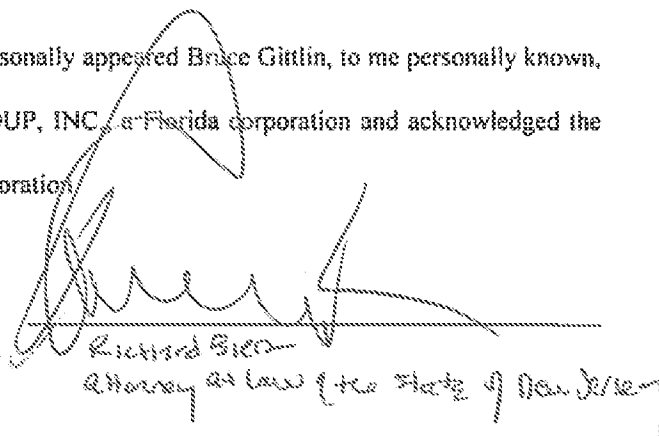 sonally appeared Bruce Gittlin, to me personally known,
OUP, INC., a Florida corporation and acknowledged the
oration
Richard
Attorney at Law of the State of New Jersey